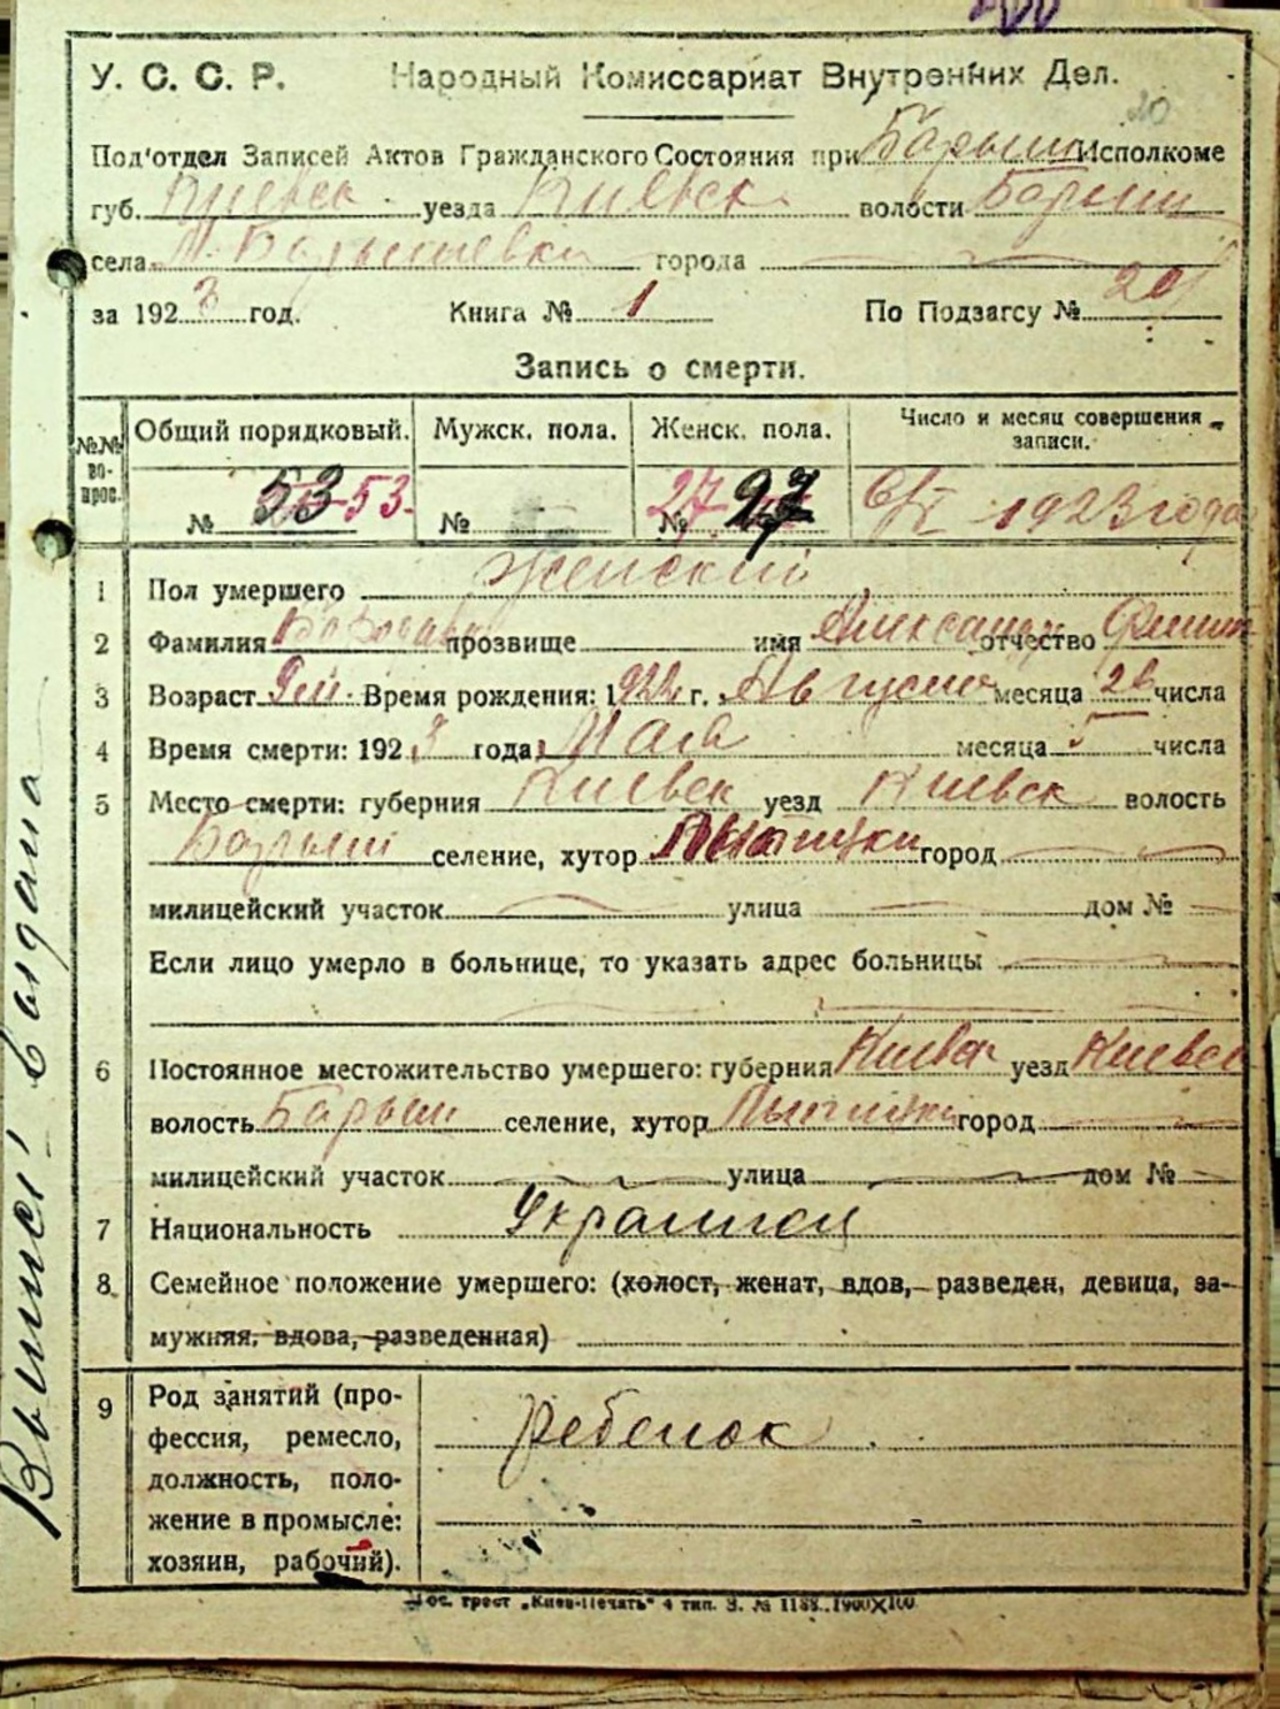 У. С. С. Р. Народный Комиссариат Внутренних Дел.
20
Под'отдел Записей Актов Гражданского Состояния при Барыш Исполкоме
губ. Киевск уезда Киевск волости Барыш
села М. Барышевки города
за 1923 год. Книга № 1 По Подзагсу № 20
Запись о смерти.
№№ вопрос. Общий порядковый. Мужск. пола. Женск. пола. Число и месяц совершения записи.
№ 53 53. № № 27 27 6/V 1923 года
1 Пол умершего Женский
2 Фамилия прозвище имя Александра отчество Филип
3 Возраст 9 м. Время рождения: 1922 г. Августа месяца 26 числа
4 Время смерти: 1923 года Мая месяца 5 числа
5 Место смерти: губерния Киевск уезд Киевск волость
Барыш селение, хутор город
милицейский участок улица дом №
Если лицо умерло в больнице, то указать адрес больницы
6 Постоянное местожительство умершего: губерния Киевск уезд Киевск
волость Барыш селение, хутор город
милицейский участок улица дом №
7 Национальность Украинец
8 Семейное положение умершего: (холост, женат, вдов, разведен, девица, за-
мужняя, вдова, разведенная)
9 Род занятий (про-
фессия, ремесло, Ребенок
должность, поло-
жение в промысле:
хозяин, рабочий).
Гос. трест „Киев-Печать" 4 тип. З. № 1188. 1900X100
Выпись выдана